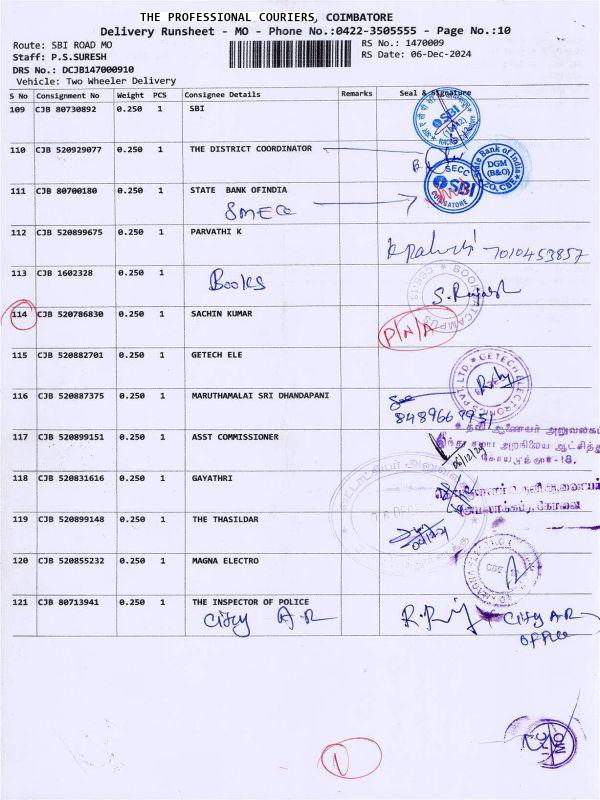 THE PROFESSIONAL COURIERS, COIMBATORE
Delivery Runsheet - MO - Phone No.:0422-3505555 - Page No.:10
Route: SBI ROAD MO
RS No.: 1470009
Staff: P.S.SURESH
RS Date: 06-Dec-2024
DRS No.: DCJB147000910
Vehicle: Two Wheeler Delivery
S No Consignment No Weight PCS Consignee Details Remarks Seal & Signature
109 CJB 80730892 0.250 1 SBI
SBI
110 CJB 520929077 0.250 1 THE DISTRICT COORDINATOR
State Bank of India
DGM
(B&O)
111 CJB 80700180 0.250 1 STATE BANK OFINDIA
SMECC
SECC
SBI
COIMBATORE
112 CJB 520899675 0.250 1 PARVATHI K
7010453857
113 CJB 1602328 0.250 1
Books
S. Rajesh
114 CJB 520786830 0.250 1 SACHIN KUMAR
P/N/A
115 CJB 520882701 0.250 1 GETECH ELE
GETECH ELECTRONICS PVT. LTD.
116 CJB 520887375 0.250 1 MARUTHAMALAI SRI DHANDAPANI
8489669951
117 CJB 520899151 0.250 1 ASST COMMISSIONER
உதவி ஆணையர் அலுவலகம்
இந்து சமய அறநிலைய ஆட்சித்து
கோயமுத்தூர்-18.
06/12/24
118 CJB 520831616 0.250 1 GAYATHRI
119 CJB 520899148 0.250 1 THE THASILDAR
120 CJB 520855232 0.250 1 MAGNA ELECTRO
121 CJB 80713941 0.250 1 THE INSPECTOR OF POLICE
City A R
City A R
office
1
MO